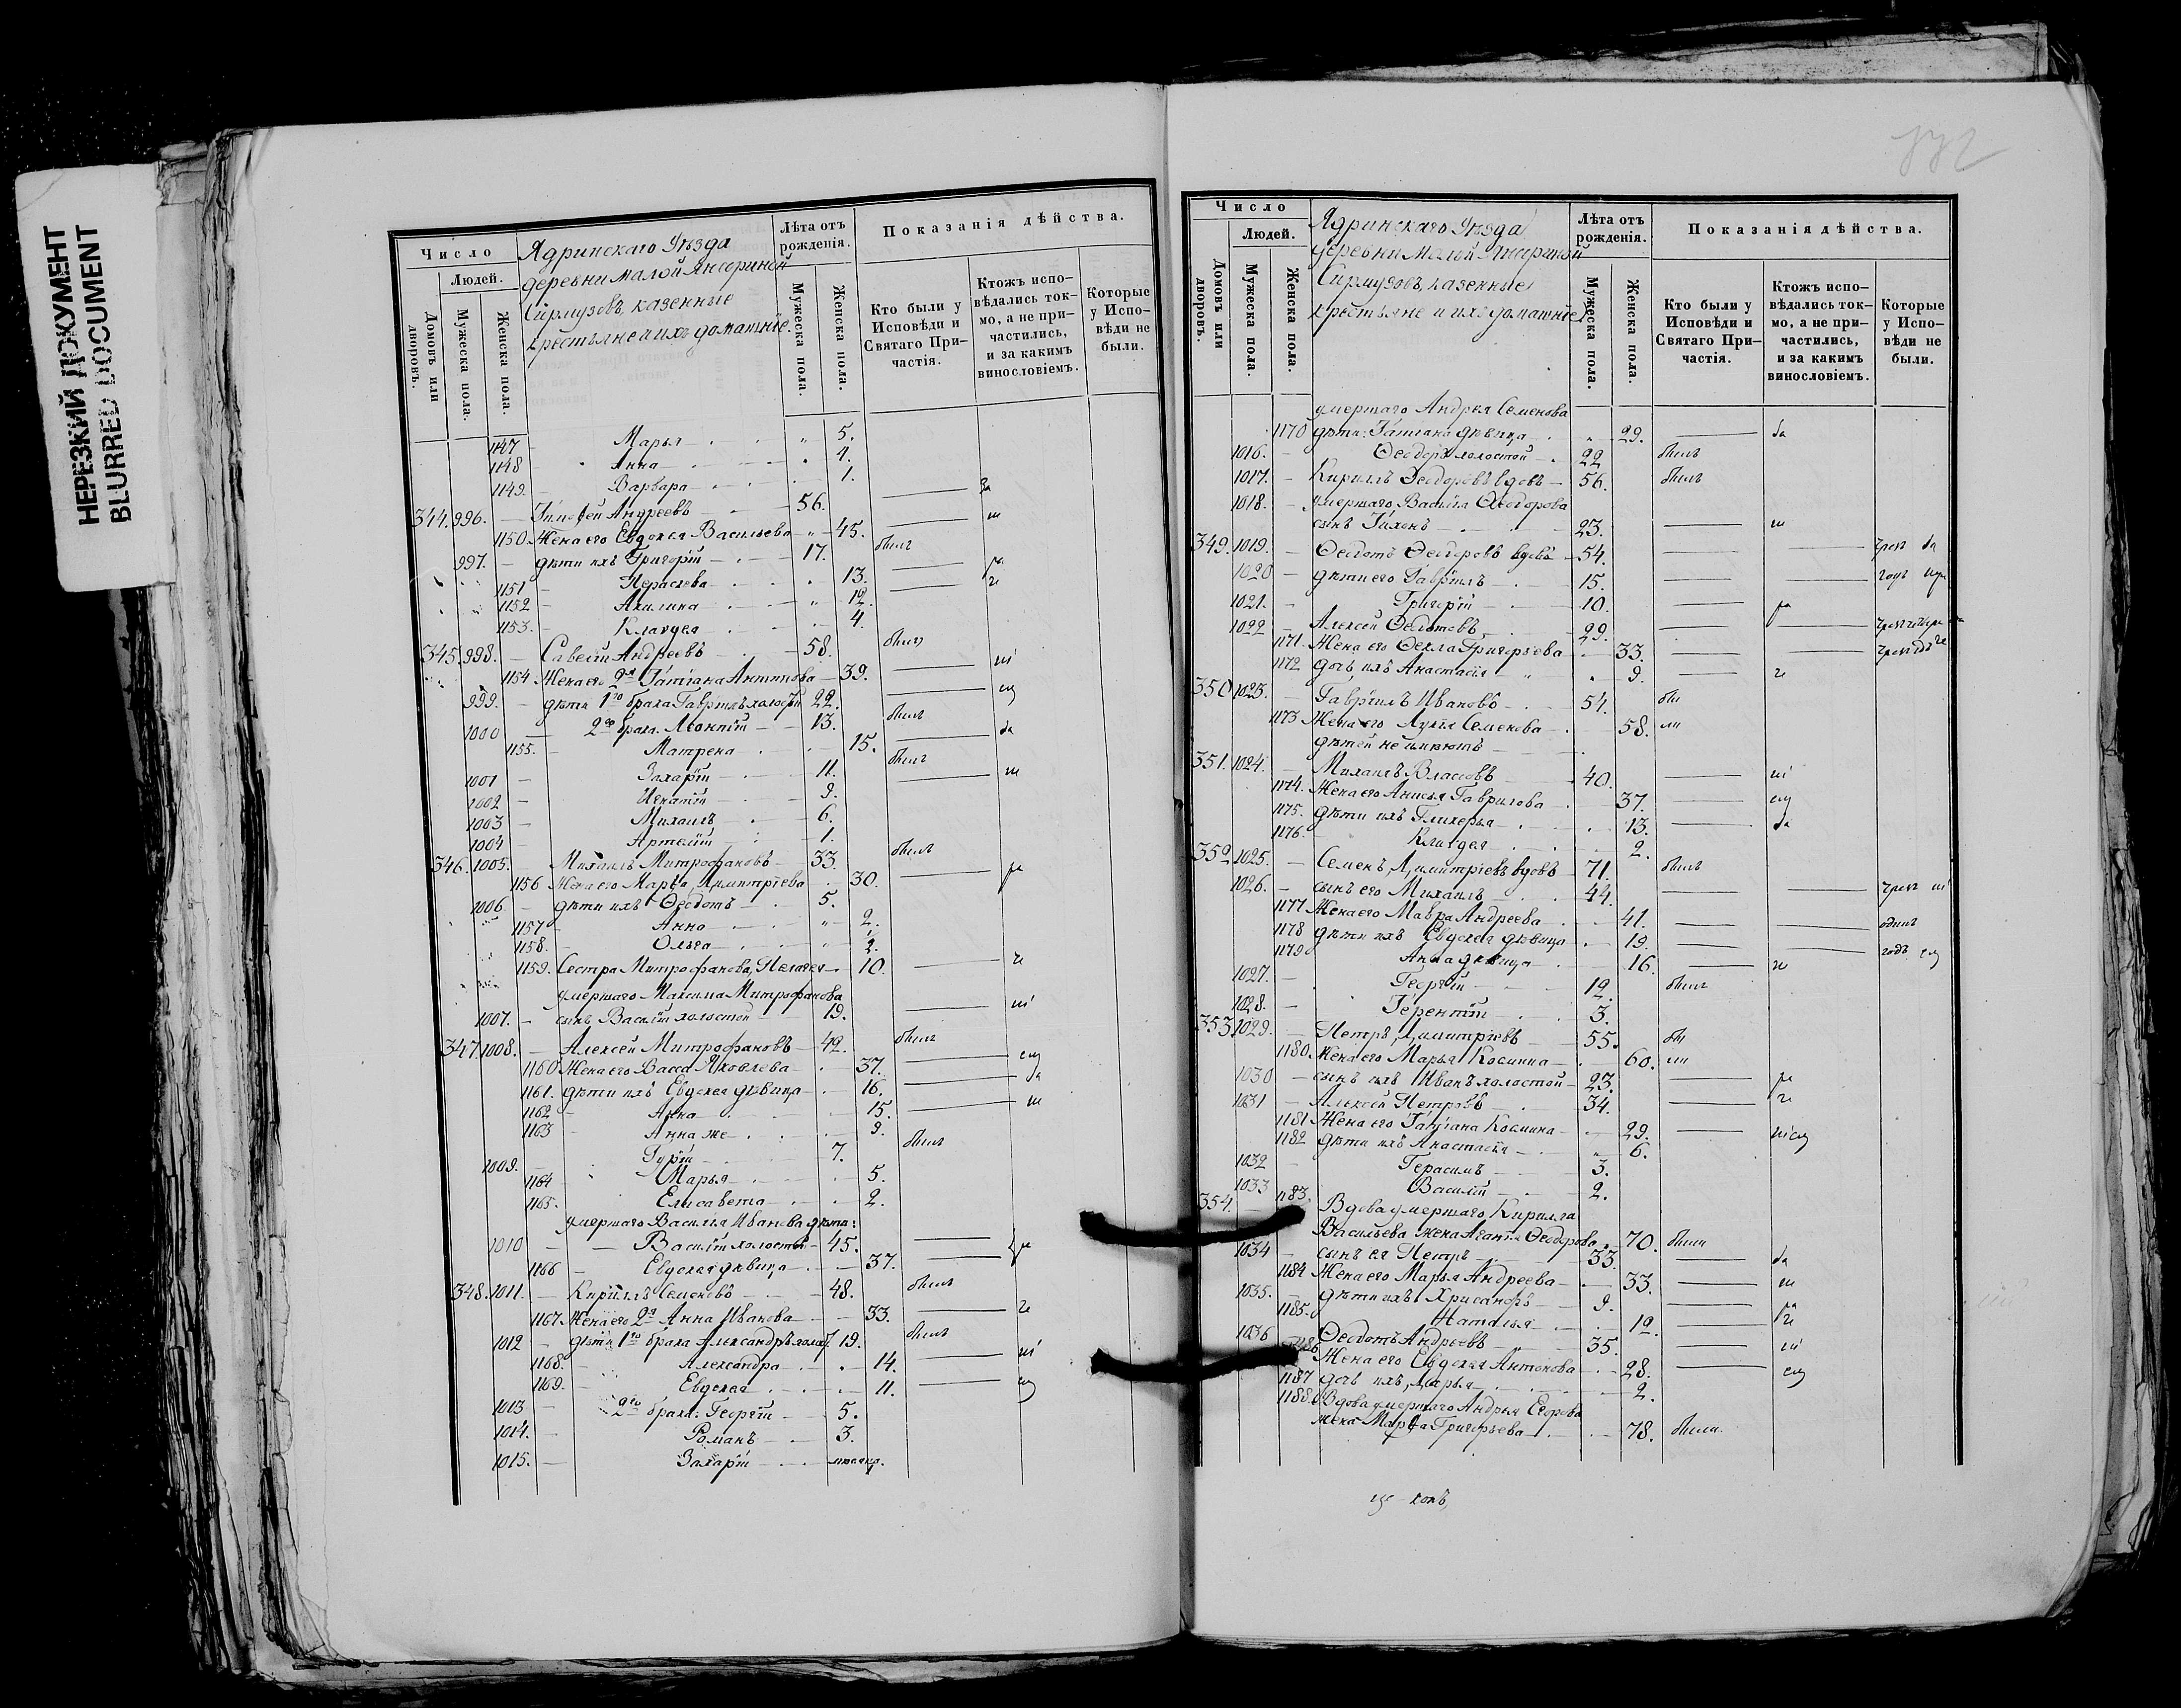 НЕРЕЗКИЙ ДОКУМЕНТ
BLURRED DOCUMENT
Число
Людей.
Домовъ или дворовъ.
Мужеска пола.
Женска пола.
Ядринскаго Уѣзда
деревни Малой
казенные
крестьяне и ихъ домашніе.
Лѣта отъ рожденія.
Мужеска пола.
Женска пола.
Показанія дѣйства.
Кто были у Исповѣди и Святаго Причастія.
Ктожъ исповѣдались токмо, а не причастились, и за какимъ винословіемъ.
Которые у Исповѣди не были.
1147 Марья 5.
1148 Анна 4.
1149. Варвара 1. За
344. 996. Тимофей Андреевъ 56.
1150. Жена его Евдокея Васильева 45.
997. дѣти ихъ Григорій 17. былъ
1151 13.
1152 Акилина 12.
1153. Клавдея 4.
345. 998. Андреевъ 58. былъ
1154 Жена его 2я Татіана Антипова 39.
999. дѣти 1го брака Гавріилъ 22.
1000 2го брака Леонтій 13. былъ
1155. Матрена 15.
1001 Захарій 11. былъ
1002 Игнатій 9.
1003 Михаилъ 6.
1004 Артемій 1.
346. 1005. Михаилъ Митрофановъ 33. былъ
1156 Жена его Марѳа Димитріева 30.
1006. дѣти ихъ Ѳеодотъ 5.
1157 Анна 2.
1158. Ольга 2.
1159. Сестра Митрофанова, Пелагея 10.
умершаго Максима Митрофанова
1007. сынъ Василій холостой 19.
347. 1008. Алексей Митрофановъ 42. былъ
1160 Жена его Васса Яковлева 37.
1161. дѣти ихъ Евдокея дѣвица 16.
1162 Анна 15.
1163 Анна же 9.
1009. Гурій 7. былъ
1164 Марья 5.
1165. Елисавета 2.
умершаго Василья Иванова дѣти:
1010 Василій холостой 45.
1166 Евдокея дѣвица 37.
348. 1011. Кириллъ Семеновъ 48. былъ
1167 Жена его 2я Анна Иванова 33.
1012 дѣти 1го брака Александръ 19. былъ
1168. Александра 14.
1169. Евдокея 11.
1013 2го брака: Георгій 5.
1014. Романъ 3.
1015. Захарій
Число
Людей.
Домовъ или дворовъ.
Мужеска пола.
Женска пола.
Ядринскаго Уѣзда
деревни Малой
казенные
крестьяне и ихъ домашніе
Лѣта отъ рожденія.
Мужеска пола.
Женска пола.
Показанія дѣйства.
Кто были у Исповѣди и Святаго Причастія.
Ктожъ исповѣдались токмо, а не причастились, и за какимъ винословіемъ.
Которые у Исповѣди не были.
умершаго Андрея Семенова
1170 дѣти: Татіана дѣвица 29.
1016. Ѳеодоръ холостой 22 былъ
1017. Кириллъ Ѳеодоровъ вдовъ 56. былъ
1018. умершаго Василія Ѳеодорова
сынъ Тихонъ 23.
349. 1019. Ѳеодотъ Ѳеодоровъ вдовъ 54.
1020 дѣти его Гавріилъ 15.
1021. Григорій 10.
1022 Алексей Ѳедотовъ 29.
1171. Жена его Ѳекла Григорьева 33.
1172 дочь ихъ Анастасія 9.
350 1023. Гавріилъ Ивановъ 54.
1173 Жена его Лукія Семенова 58.
дѣтей не имѣютъ
351. 1024. Михаилъ Власовъ 40.
1174. Жена его Анисья Гаврилова 37.
1175. дѣти ихъ Гликерья 13.
1176. Клавдея 2.
352 1025. Семенъ Димитріевъ вдовъ 71. былъ
1026. сынъ его Михаилъ 44.
1177 Жена его Мавра Андреева 41.
1178 дѣти ихъ Евдокея дѣвица 19.
1179 Анна дѣвица 16.
1027. Георгій 12. былъ
1028. Терентій 3.
353 1029. Петръ Димитріевъ 55.
1180. Жена его Марья Космина 60.
1030 сынъ ихъ Иванъ холостой 23.
1031 Алексей Петровъ 34.
1181 Жена его Татіана Космина 29.
1182 дѣти ихъ Анастасія 6.
1032 Герасимъ 3.
1033 Василій 2.
354. 1183. Вдова умершаго Кирилла
Васильева жена Агаѳія Ѳеодорова 70. была
1034 сынъ ея Петръ 33.
1184 Жена его Марья Андреева 33.
1035. дѣти ихъ Хрисанфъ 9.
1185. Наталья 12.
1036 Ѳеодотъ Андреевъ 35.
Жена его Евдокея Антонова 28.
1187 дочь ихъ, Марья 2.
1188 Вдова умершаго Андрея Егорова
жена Марѳа Григорьева 78. была.